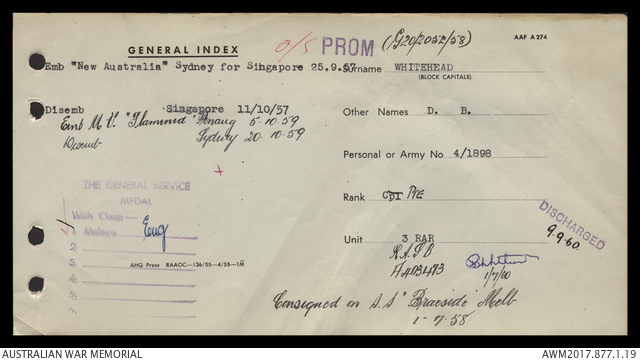 GENERAL INDEX
o/s PROM (G20/2052/58) AAF A 274
Emb "New Australia" Sydney for Singapore 25.9.57
Surname WHITEHEAD
(BLOCK CAPITALS)
Disemb Singapore 11/10/57
Emb M.V. "Flaminia" Penang 5.10.59
Disemb Sydney 20.10.59
Other Names D. B.
Personal or Army No 4/1898
THE GENERAL SERVICE
MEDAL
With Clasp—
1 Malaya Eng
2
3
4
5
AHQ Press RAAOC—136/55—4/55—1M
Rank Cpl Pte
DISCHARGED
9.9.60.
Unit 3 RAR
1/7/60
Consigned on S.S "Braeside" Melb
1-7-58
AUSTRALIAN WAR MEMORIAL
AWM2017.877.1.19